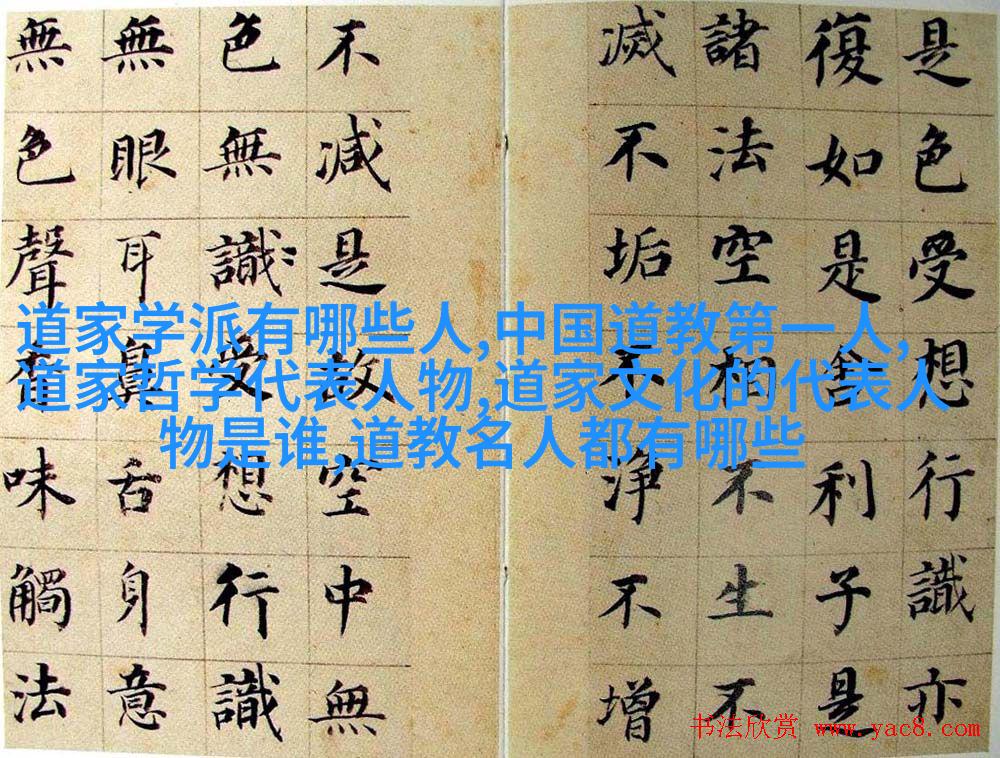 是色受想行識亦
復如是舍利子是
諸法空相不生不
滅不垢不淨不增
不減是故空中無
色無識受想行識
無眼耳鼻舌身意
無色聲香味觸法
道家学派有哪些人,中国道教第一人,
道家哲学代表人物,道家文化的代表人
物是谁,道教名人都有哪些
书法欣赏 www.yac8.com